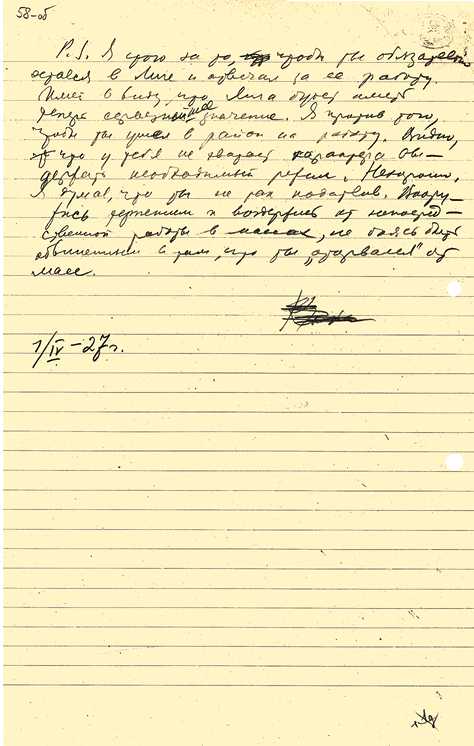 58-об
P.S. Я стою за то, чтобы ты обязательно
остался в Лиге и отвечал за ее работу.
Имей в виду, что Лига будет иметь
теперь серьезнейшее значение. Я против того,
чтобы ты ушел в район на работу. Видно,
что у тебя не хватает характера вы-
держать необходимый режим. Нехорошо.
Я думал, что ты не так податлив. Воору-
жись терпением и воздержись от непосред-
ственной работы в массах, не боясь быть
обвиненным в том, что ты „оторвался" от
масс.
1/IV – 27 г.